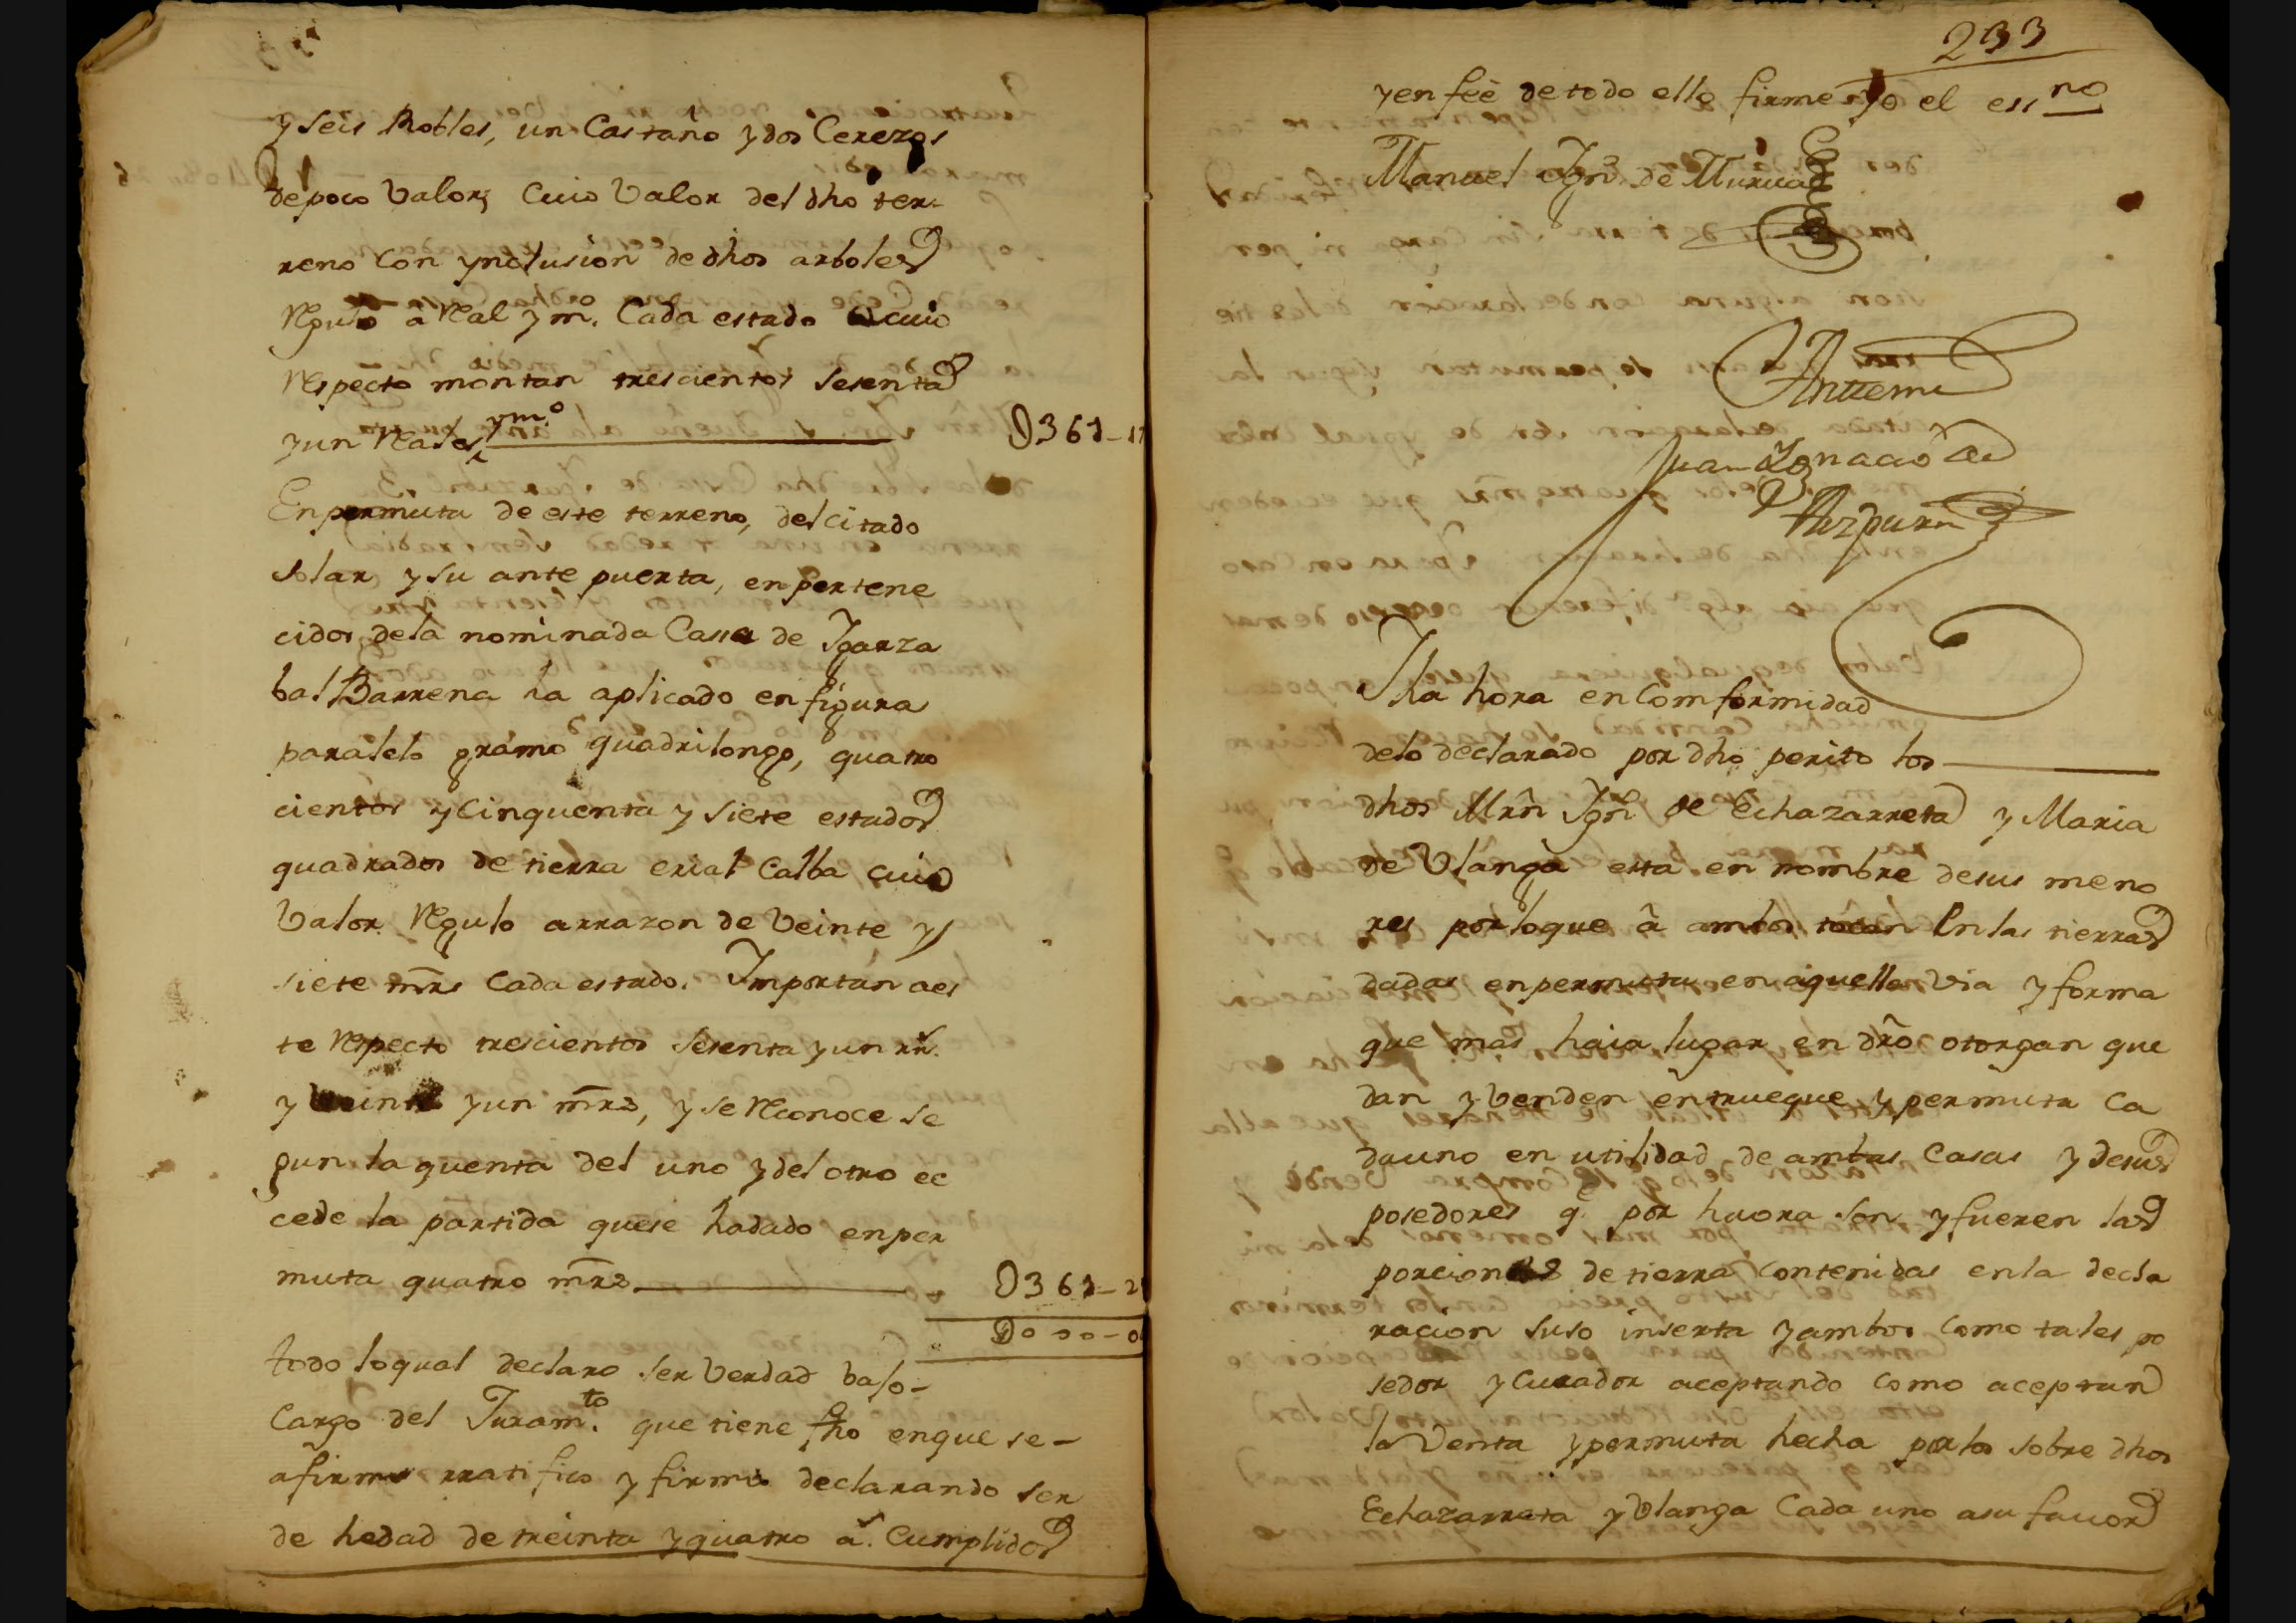 y seis Robles, un Castaño y dos Cerezos
de poco Valor, Cuio Valor del dho ter-
reno Con ynclusion de dhos arboles
Regulo â Real y mº. Cada estado Cuio
Respecto montan trescientos sesenta
y un Reales ymº. 361-17
En permuta de este terreno, del citado
solar, y su ante puerta, en pertene
cidos dela nominada Casa de Ygarza
bal Barrena ha aplicado en figura
paralelo gramo quadrilongo, quatro
cientos y cinquenta y siete estados
quadrados de tierra erial Calba cuio
Valor Regulo arrazon de Veinte y
siete mrs Cada estado. Importan aes
te Respecto trescientos sesenta y un rs.
y Veinte yun mrs, y se Reconoce se
gun la quenta del uno y del otro ec
cede la partida quese hadado en per
muta quatro mrs. 361-2
000-0
todo loqual declaro ser Verdad baso-
Cargo del Juramto. que tiene fho enque se-
afirmo rratifico y firmo declarando ser
de hedad de treinta y quatro as. Cumplidos
233
yen feè detodo ello firme yo el essno
Manuel Ygnº de Murua
Anttemi
Juan Ygnacio de
Azpuru
Y la hora en Comformidad
delo declarado por dho perito los
dhos Mrñ Ygnº de Echazarreta y Maria
de Vlanga esta en nombre desus meno
res por loque â ambos tocan En las tierras
dadas enpermuta en aquella via y forma
que mas haia lugar en dro otorgan que
dan y Venden en trueque y permuta Ca
dauno en utilidad de ambas Casas y desus
posedores q. por haora son y fueren las
porciones de tierra Contenidas enla decla
racion suso inserta y ambos Como tales po
sedor y Curador aceptando Como aceptan
la Venta y permuta hecha por los sobre dhos
Echazarreta y Vlanga Cada uno asu fauor